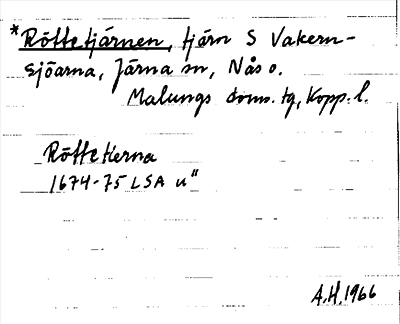 *Röttetjärnen, tjärn S Vakern-
sjöarna, Järna sn, Nås o.
Malungs doms. tg, Kopp. l.
Röttetierna
1674-75 LSA u"
A.H. 1966